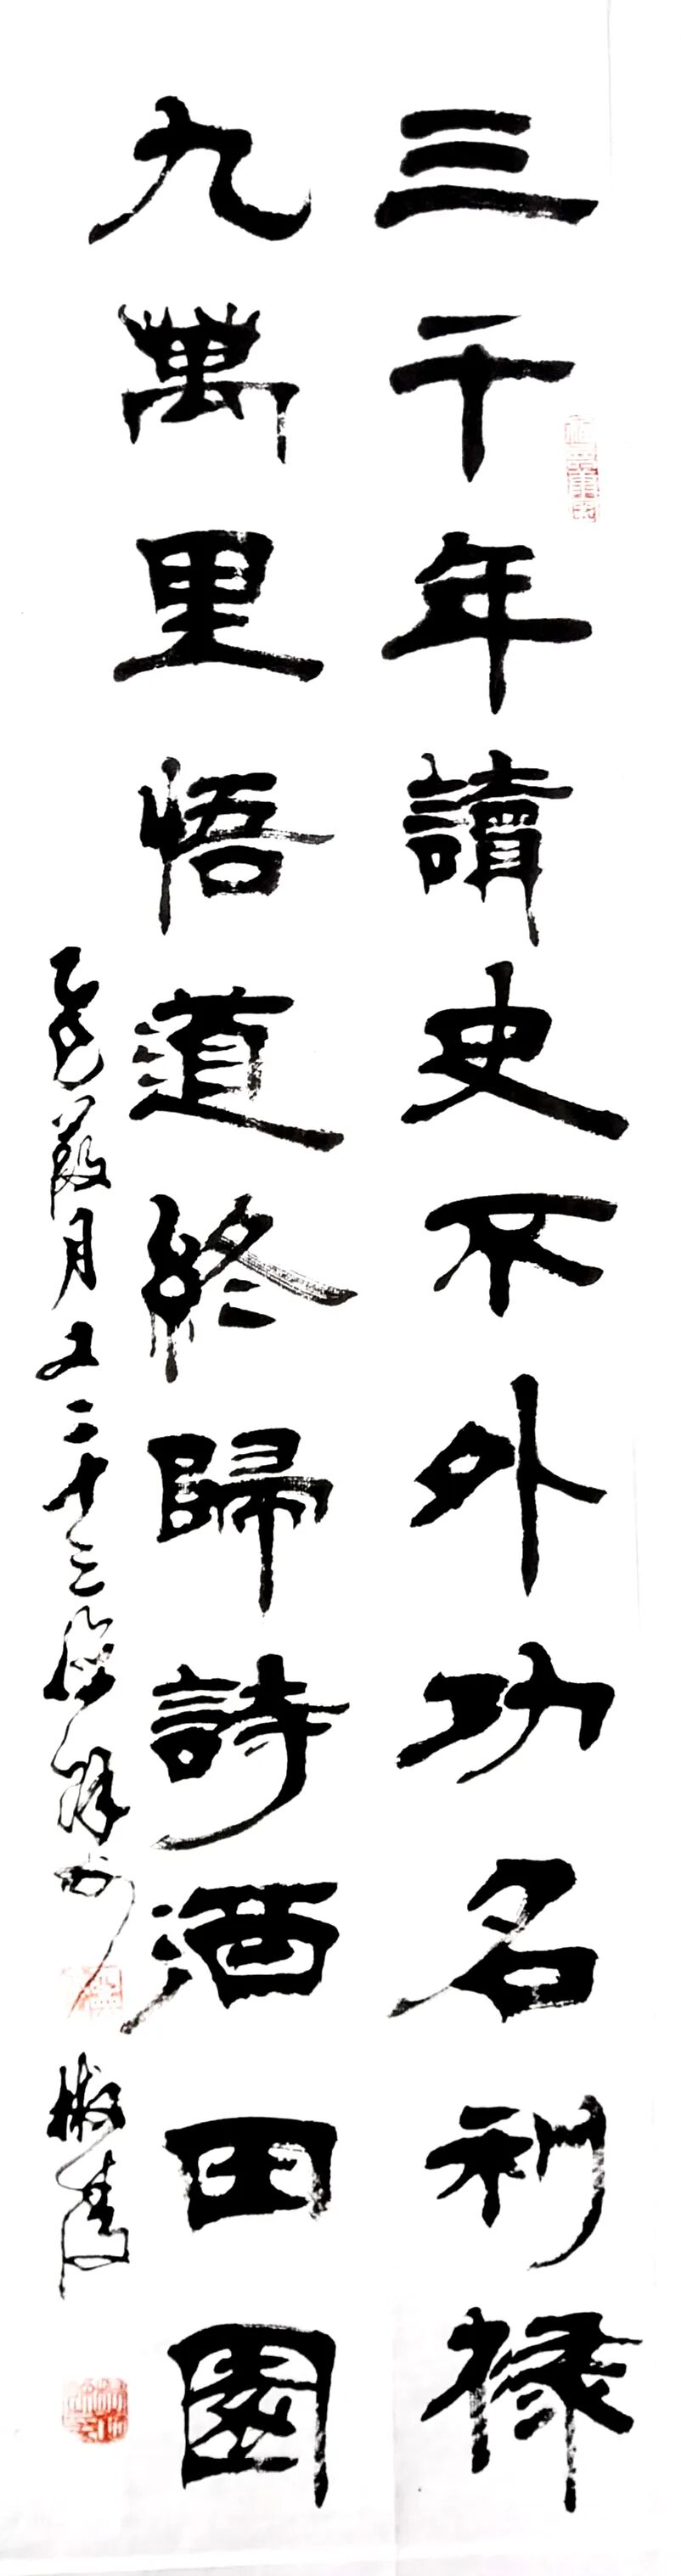 三千年讀史不外功名利祿
九萬里悟道終歸詩酒田園
乙巳葭月 二十三